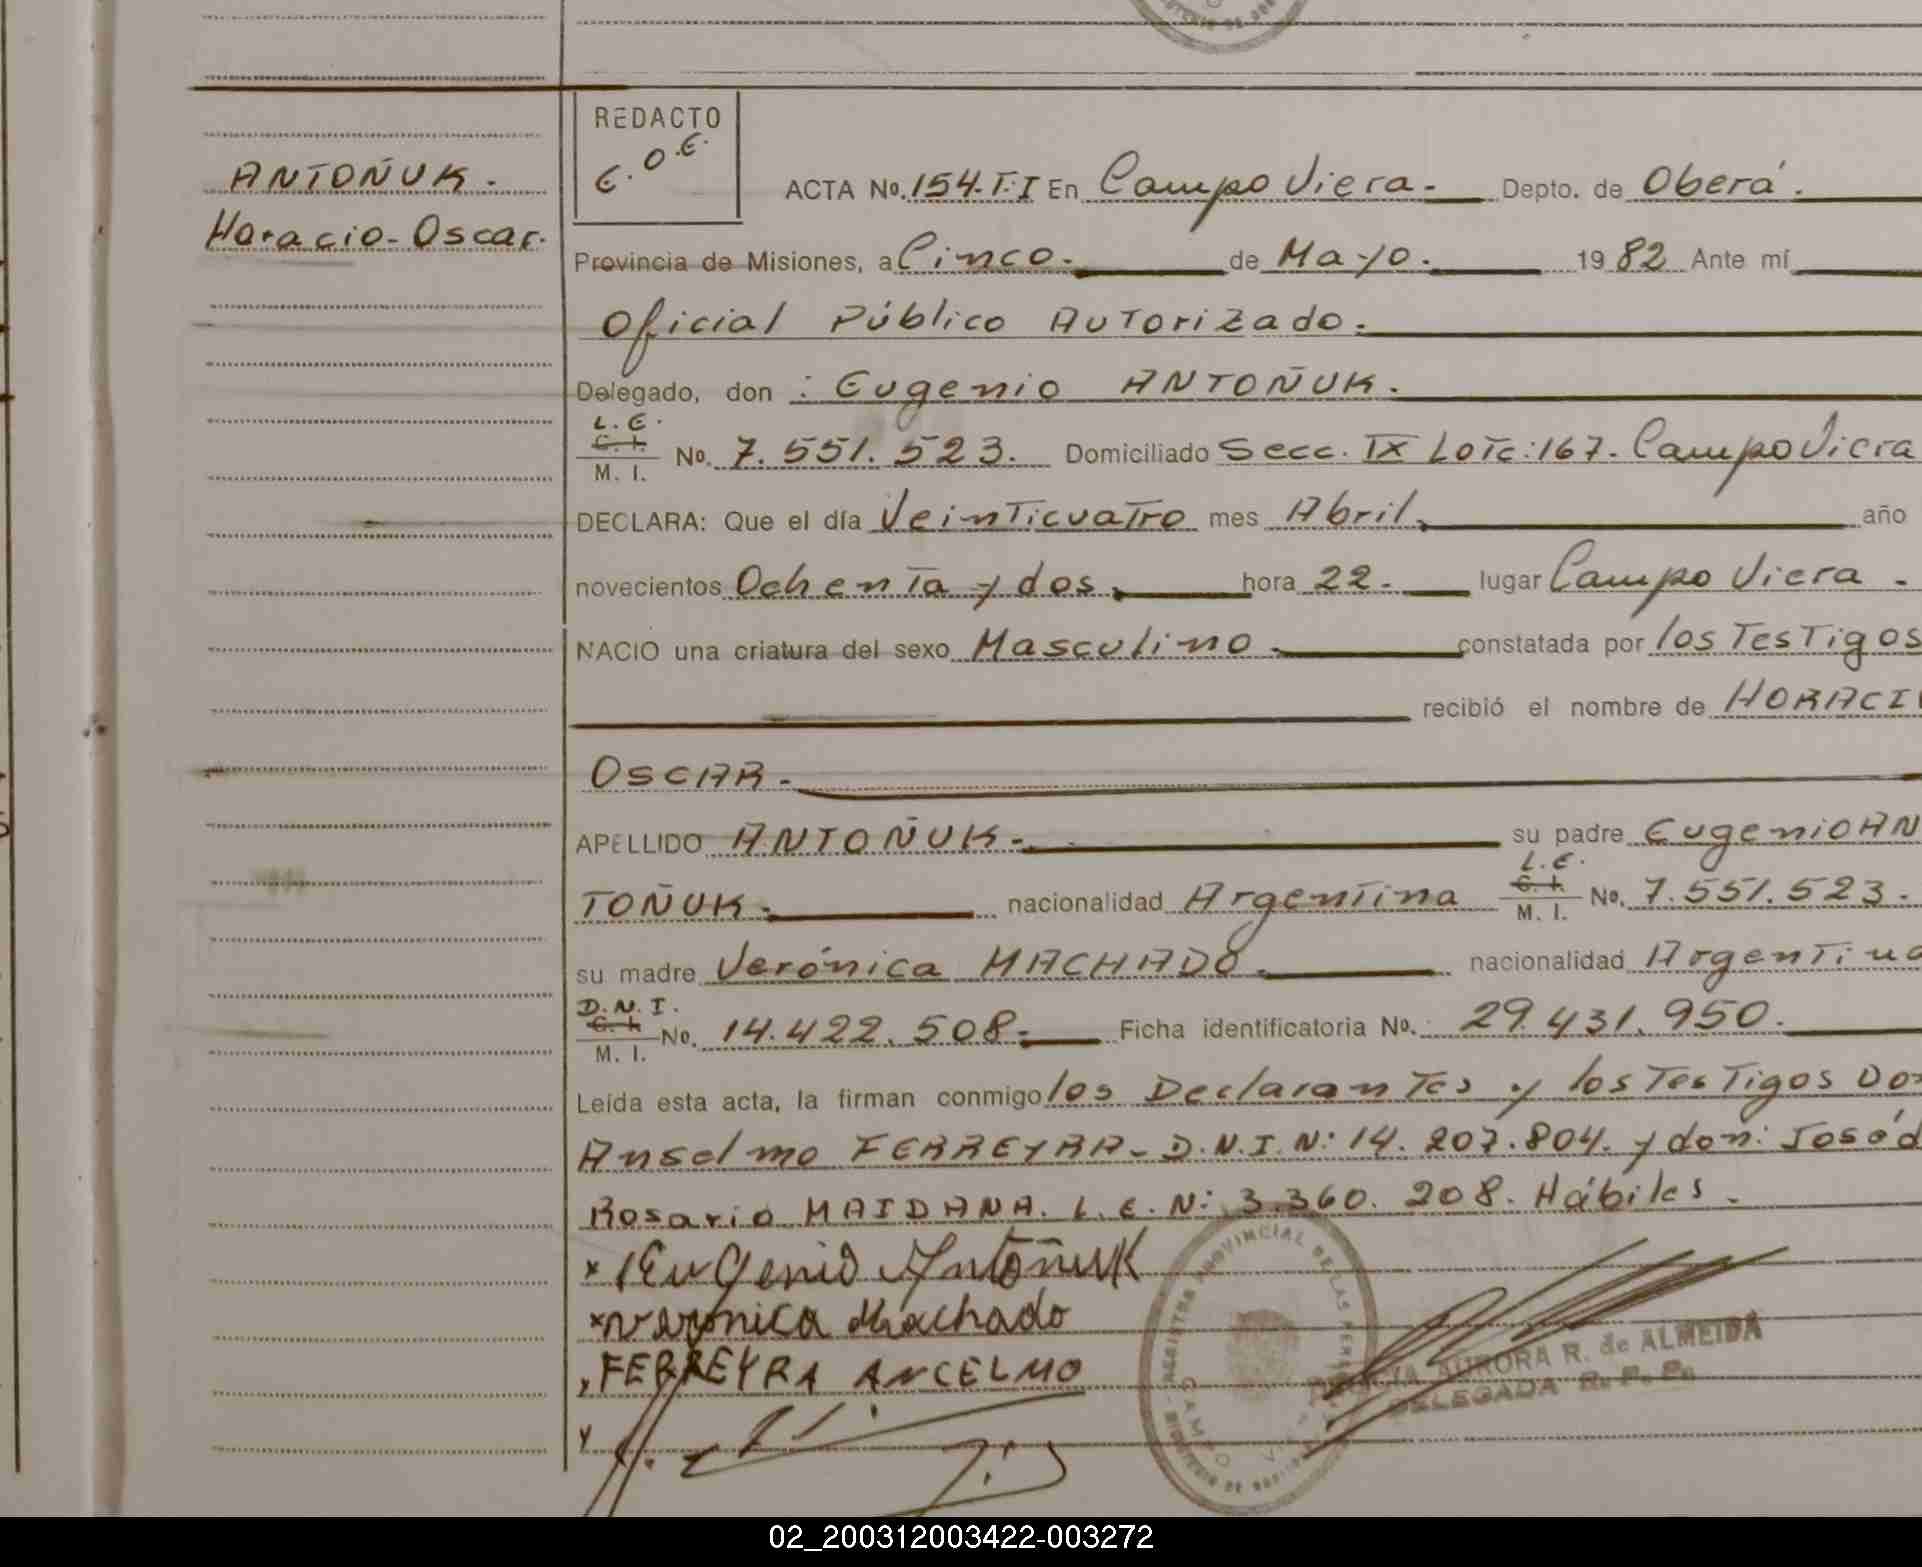 REDACTO
E.O.E.
ANTOÑUK.
Horacio-Oscar.
ACTA No. 154. T. I En Campo Viera. Depto. de Oberá.
Provincia de Misiones, a Cinco. de Mayo. 1982 Ante mí
Oficial Público Autorizado.
Delegado, don : Eugenio ANTOÑUK.
L.E.
C. I.
M. I. No. 7.551.523. Domiciliado Secc. IX Lote:167. Campo Viera
DECLARA: Que el día Veinticuatro mes Abril, año
novecientos Ochenta y dos, hora 22. lugar Campo Viera.
NACIO una criatura del sexo Masculino. constatada por los Testigos
recibió el nombre de HORACIO
OSCAR.
APELLIDO ANTOÑUK. su padre Eugenio AN
L.E.
C. I.
TOÑUK. nacionalidad Argentina M. I. No. 7.551.523.
su madre Verónica MACHADO. nacionalidad Argentina
D.N.I.
C. I.
M. I. No. 14.422.508. Ficha identificatoria No. 29.431.950.
Leída esta acta, la firman conmigo los Declarantes y los Testigos Don
Anselmo FERREYRA- D.N.I.N: 14.207.804. y don: José d
Rosario MAIDANA. L.E.N: 3.360.208. Hábiles.
x Eugenio Antoñuk
x veronica Machado
FERREYRA ANCELMO
AURORA R. de ALMEIDA
DELEGADA R. P. P.
02_200312003422-003272